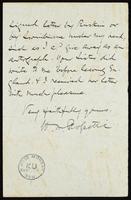 signed letter by Ruskin or
by Swinburne under my hand,
such as I cd give away as an
autograph. Your sister did
write to me before leaving
England, & I received her letter
with much pleasure.
Very faithfully yours,
W. M. Rossetti